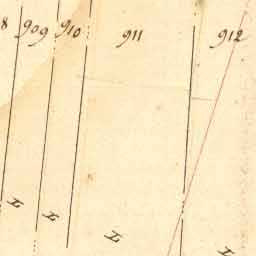 8 909 910 911 912
L L L L